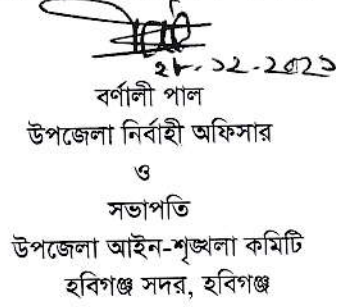 ২৮.১২.২০২১
বর্ণালী পাল
উপজেলা নির্বাহী অফিসার
ও
সভাপতি
উপজেলা আইন-শৃঙ্খলা কমিটি
হবিগঞ্জ সদর, হবিগঞ্জ